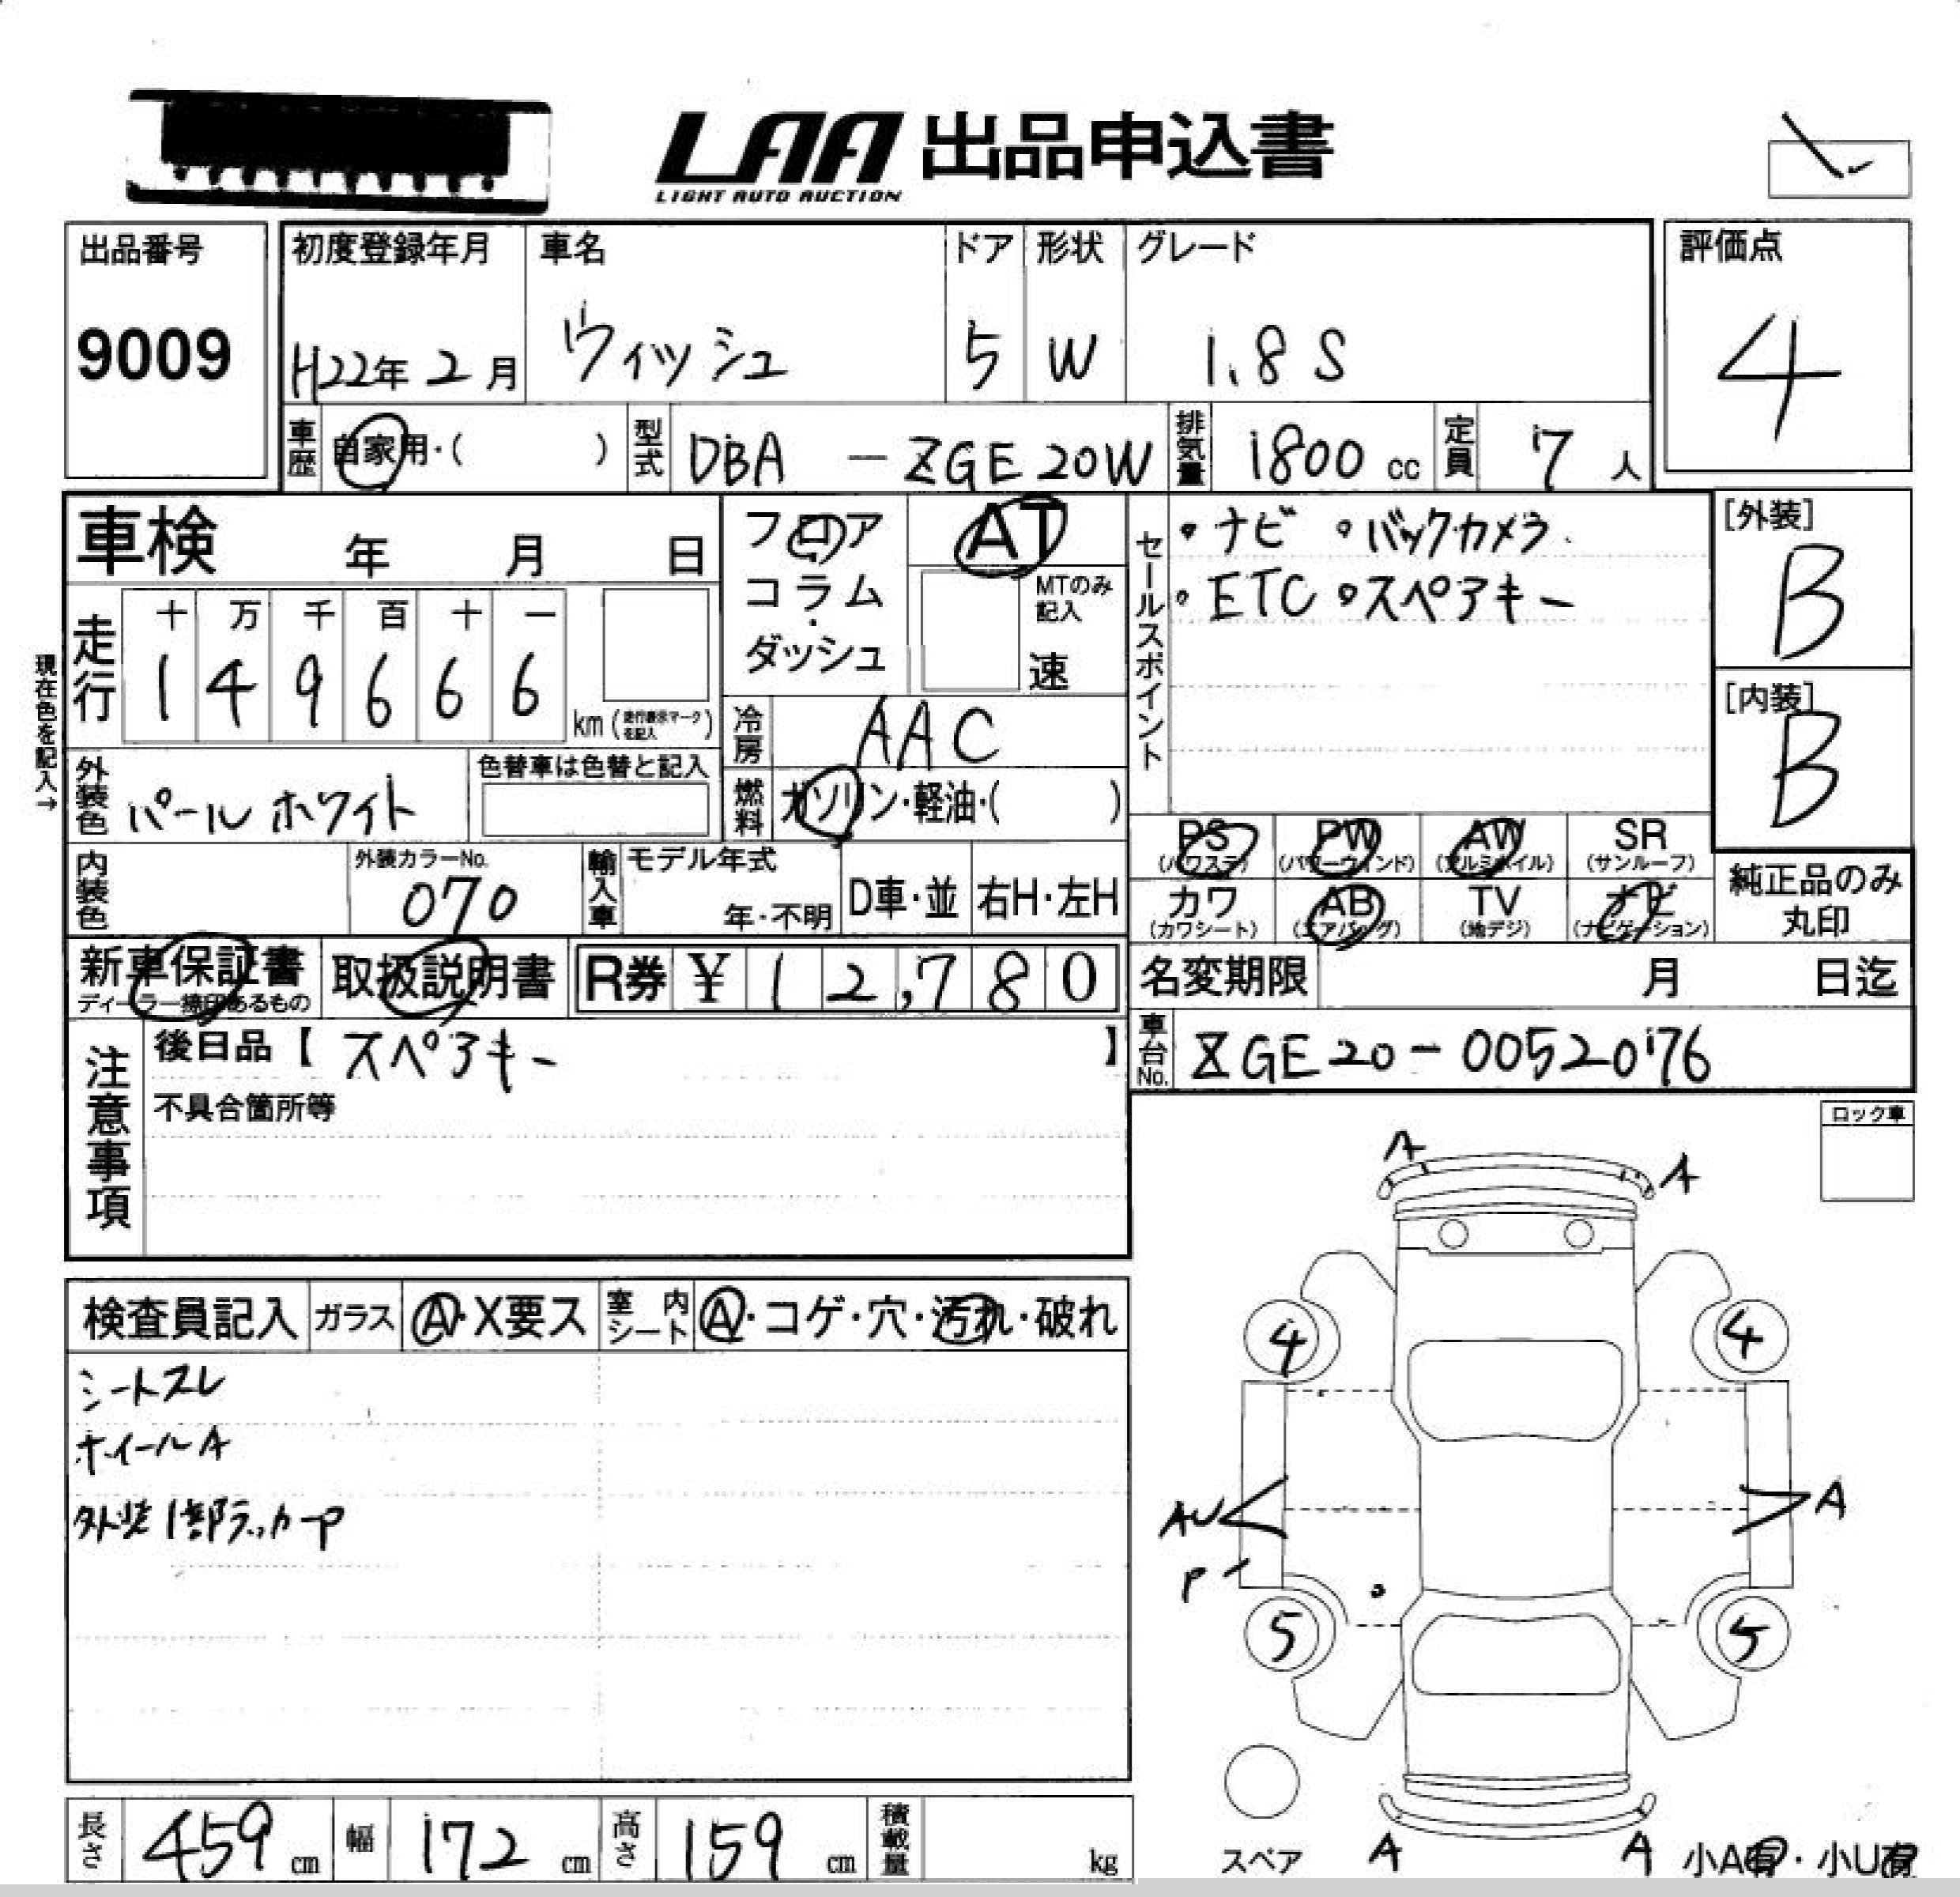 LAA 出品申込書
LIGHT AUTO AUCTION
出品番号
9009
初度登録年月
H22年 2月
車名
ウィッシュ
ドア
5
形状
W
グレード
1.8 S
評価点
4
車歴
自家用・( )
型式
DBA - ZGE20W
排気量
1800 cc
定員
7 人
車検 年 月 日
フロア
コラム
・
ダッシュ
AT
MTのみ記入
速
セールスポイント
・ナビ ・バックカメラ
・ETC ・スペアキー
[外装]
B
[内装]
B
現在色を記入→
走行
十 万 千 百 十 一
1 4 9 6 6 6
km (走行表示マークを記入)
冷房
AAC
外装色
パールホワイト
色替車は色替と記入
燃料
ガソリン・軽油・( )
PS (パワステ)
PW (パワーウィンド)
AW (アルミホイル)
SR (サンルーフ)
カワ (カワシート)
AB (エアバッグ)
TV (地デジ)
ナビ (ナビゲーション)
純正品のみ
丸印
内装色
外装カラーNo.
070
輸入車
モデル年式
年・不明
D車・並
右H・左H
新車保証書
ディーラー捺印あるもの
取扱説明書
R券 ¥ 12,780
名変期限 月 日迄
車台No.
ZGE20-0052076
注意事項
後日品【 スペアキー 】
不具合箇所等
ロック車
A
A
検査員記入
ガラス
A・X要ス
室内シート
A・コゲ・穴・汚れ・破れ
シートスレ
ホイールA
外装1部ラッカーP
4
4
AU
A
P
5
5
スペア
A
A
小A有・小U有
長さ
459 cm
幅
172 cm
高さ
159 cm
積載量
kg